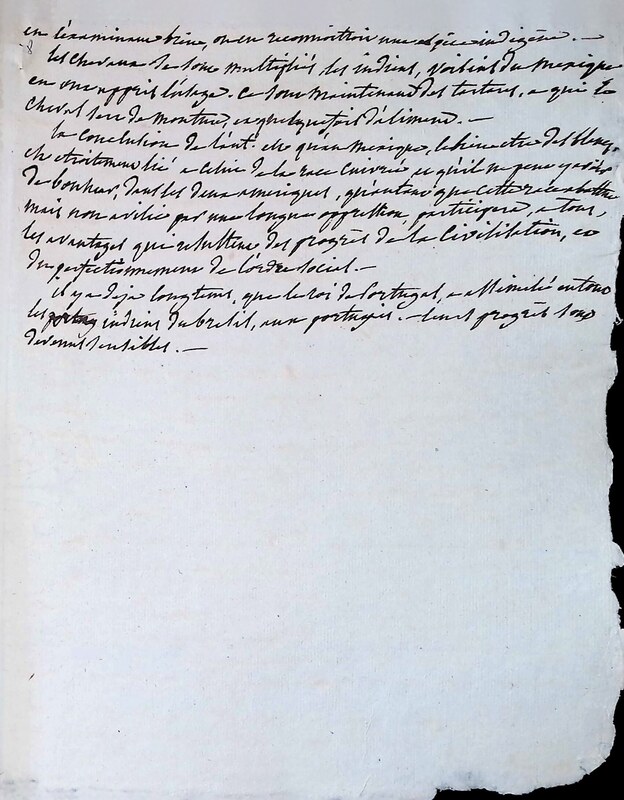 en l'examinant bien, on en reconnoitroit une espèce indigène. —
les chevaux se sont multipliés, les indiens, voisins du mexique
en ont appris l'usage. ce sont maintenant des tartares, a qui le
cheval sert de monture, et quelquefois d'aliment. —
la conclusion de l'aut. est qu'au mexique, le bien etre des blancs
est etroitement lié a celui de la race cuivrée et qu'il ne peut y avoir
de bonheur, dans les deux ameriques, qu'autant que cette race abattue
mais non avilie par une longue oppression, participera, a tous,
les avantages que resultent des progrès de la civilisation, et
du perfectionnement de l'ordre social. —
il y a deja longtems, que le roi de Portugal, a assimilé en tout
les indiens du bresil, aux portugais. — leurs progrès sont
devenus sensibles. —